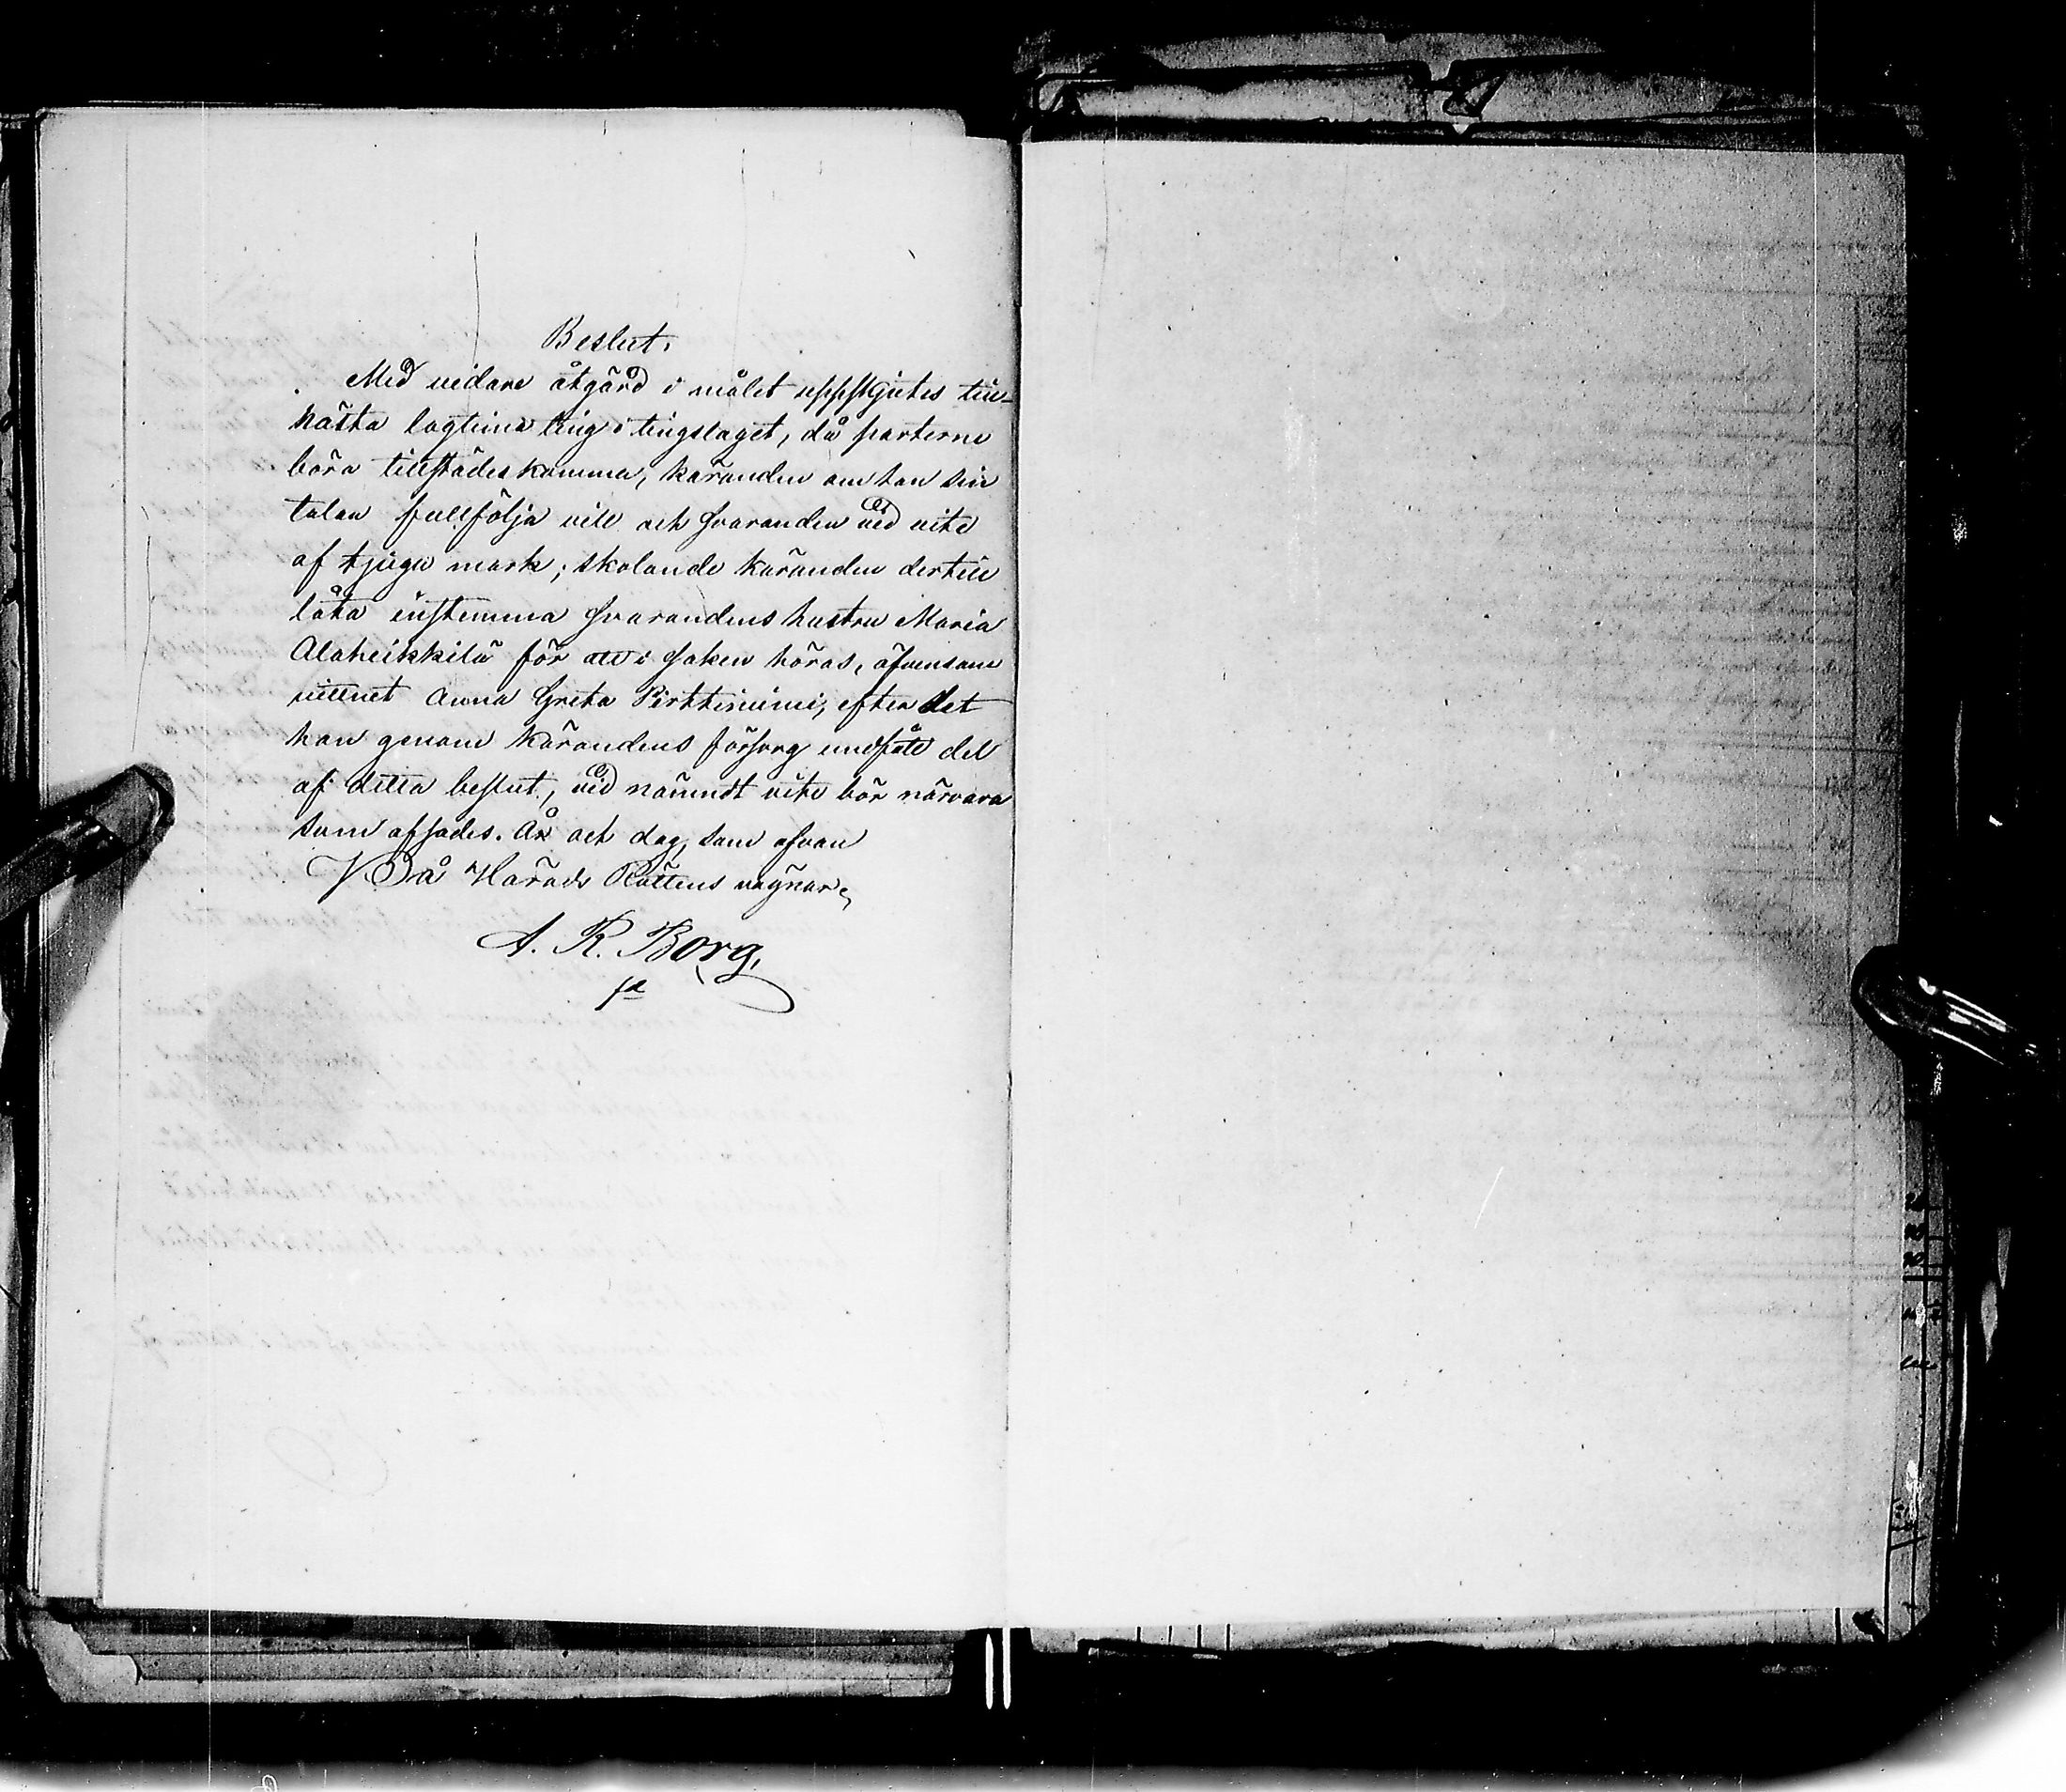 Beslut.
Med vidare åtgärd i målet uppskjutes till
nästa lagtima ting i tingslaget, då parterne
böra tillstädeskomma, käranden om han sin
talan fullfölja vill och svaranden vid vite
af tjugu mark; skolande käranden dertill
låta instemma svarandens hustru Maria
Alaheikkilä för att i saken höras, äfvensom
vittnet Anna Greta Pirttiniemi, efter det
hon genom kärandens försorg undfått del
af detta beslut, vid nämndt vite bör närvara
som afsades. År och dag, som ofvan
På Härads Rättens vägnar,
A. R. Borg.